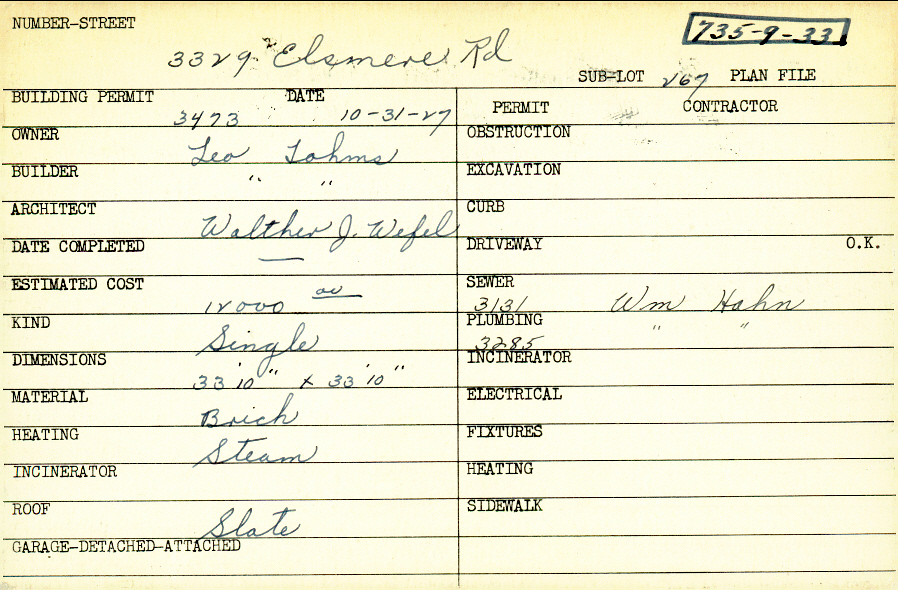 NUMBER-STREET
735-9-33
3329 Elsmere Rd
SUB-LOT 267 PLAN FILE
BUILDING PERMIT DATE
3473 10-31-27
OWNER
Leo Lohms
BUILDER
" "
ARCHITECT
Walther J. Wefel
DATE COMPLETED
—
ESTIMATED COST
12000 00
KIND
Single
DIMENSIONS
33'10" x 33'10"
MATERIAL
Brich
HEATING
Steam
INCINERATOR
ROOF
Slate
GARAGE-DETACHED-ATTACHED
PERMIT CONTRACTOR
OBSTRUCTION
EXCAVATION
CURB
DRIVEWAY O.K.
SEWER
3131 Wm Hahn
PLUMBING " "
3285
INCINERATOR
ELECTRICAL
FIXTURES
HEATING
SIDEWALK